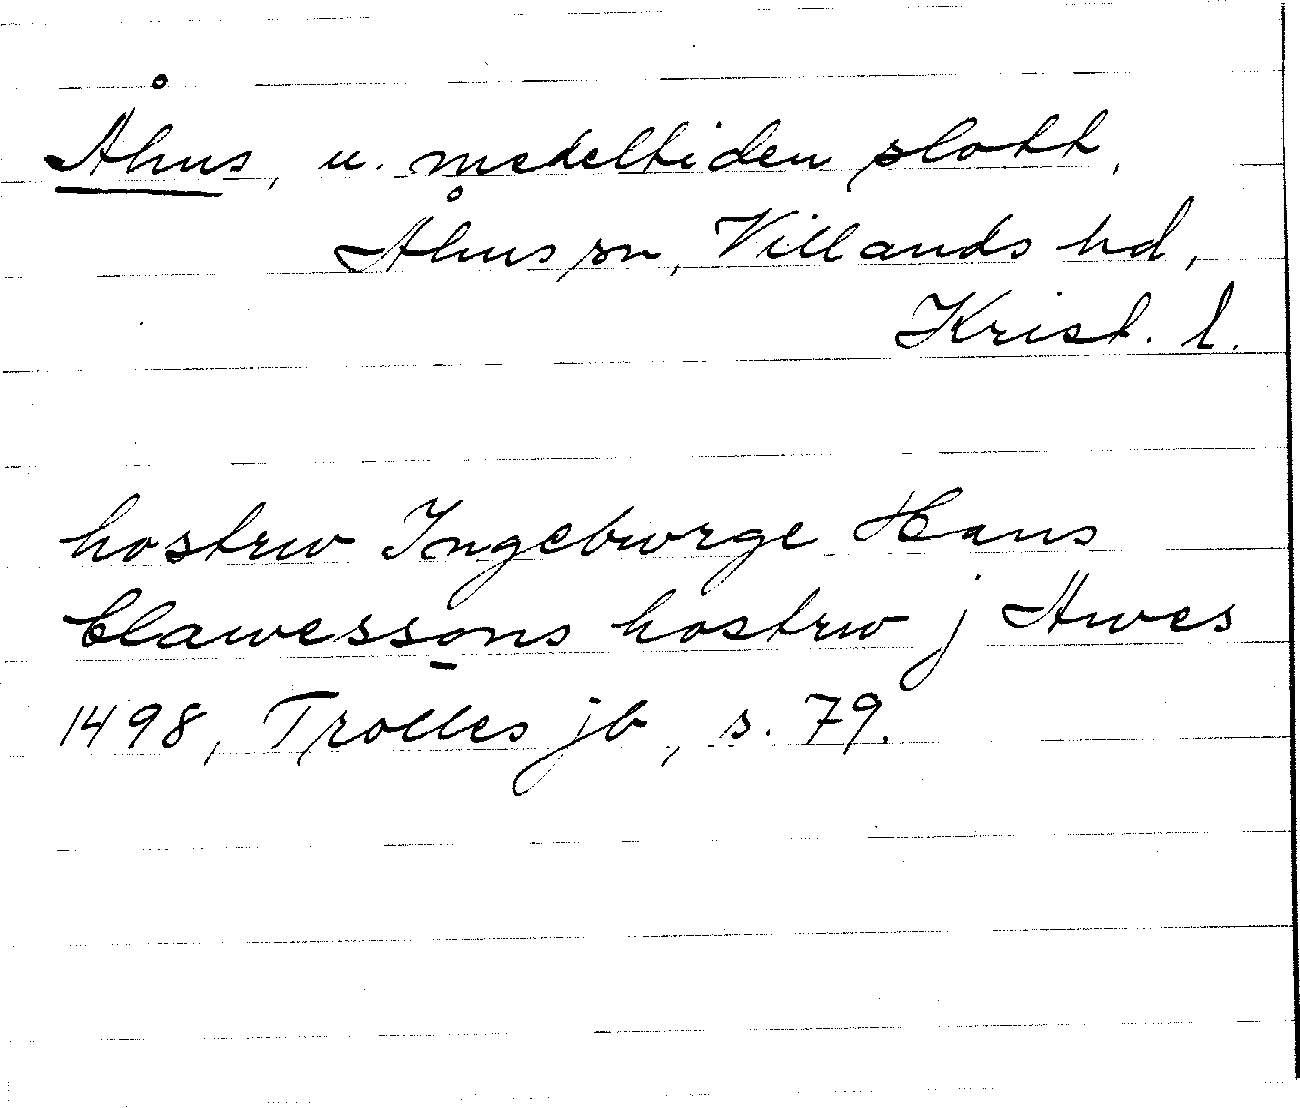 Åhus, u. medeltiden slott,
Åhus sn, Villands hd,
Krist. l.
hostrw Ingeburge Hans
Clawessons hostrw j Awes
1498, Trolles jb, s. 79.